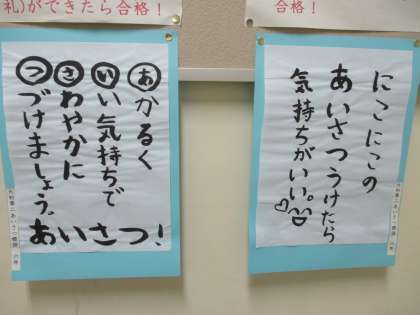 礼)ができたら合格!
合格!
あかるく
いい気持ちで
さわやかに
つづけましょう。
あいさつ!
にこにこの
あいさつうけたら
気持ちがいい。